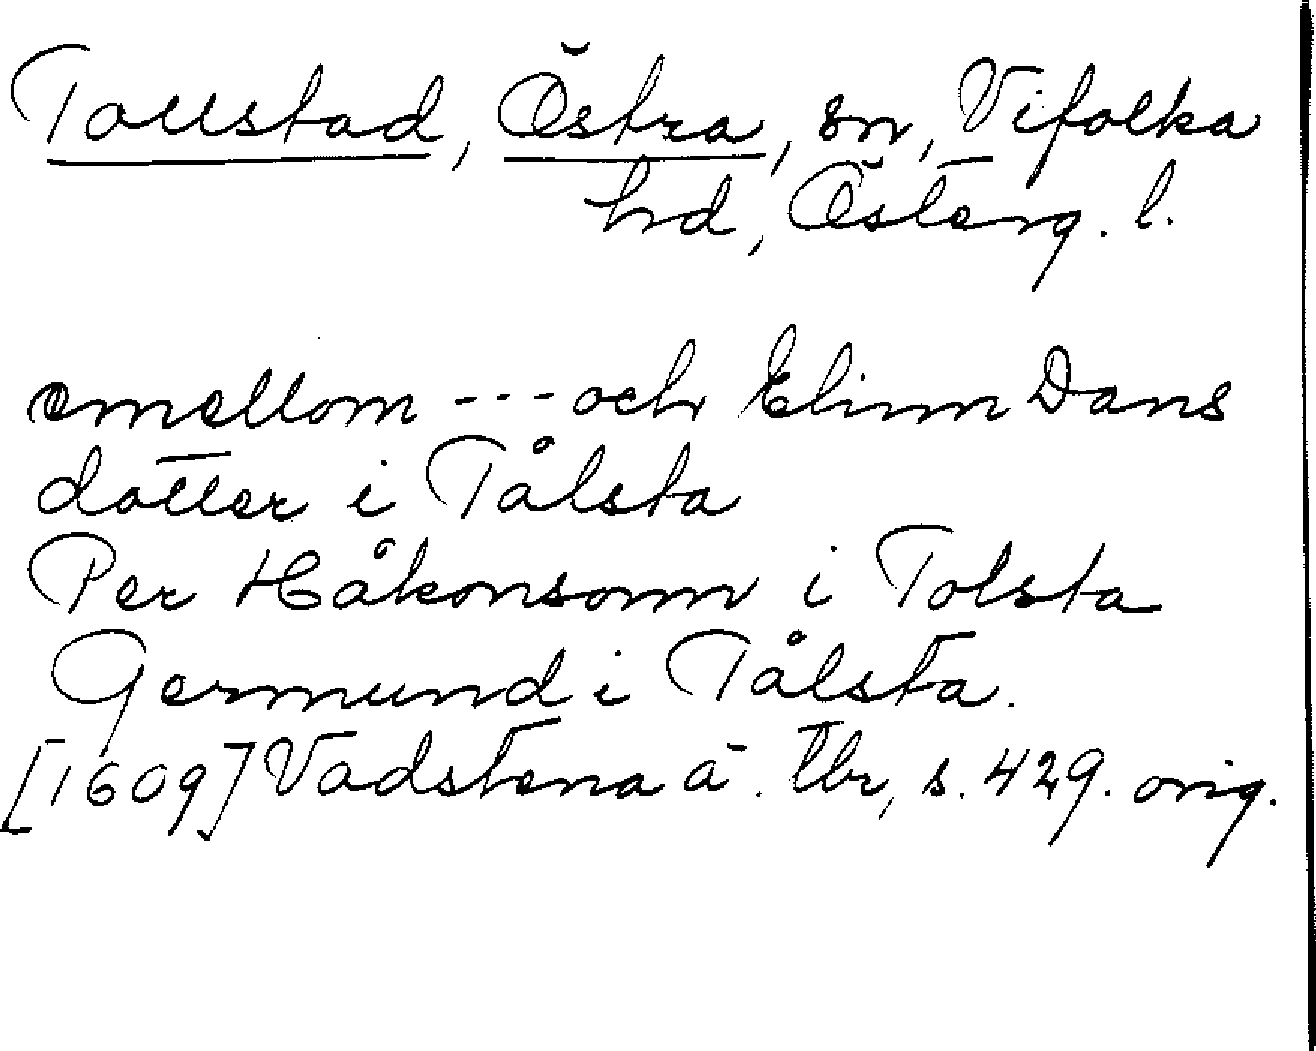 Tollstad, Östra, sn, Vifolka
hd, Österg. l.
emellom --- och Elinn Dans
dotter i Tålsta
Per Håkonsonn i Tolsta
Germund i Tålsta.
[1609] Vadstena ä. tbr, s. 429. orig.